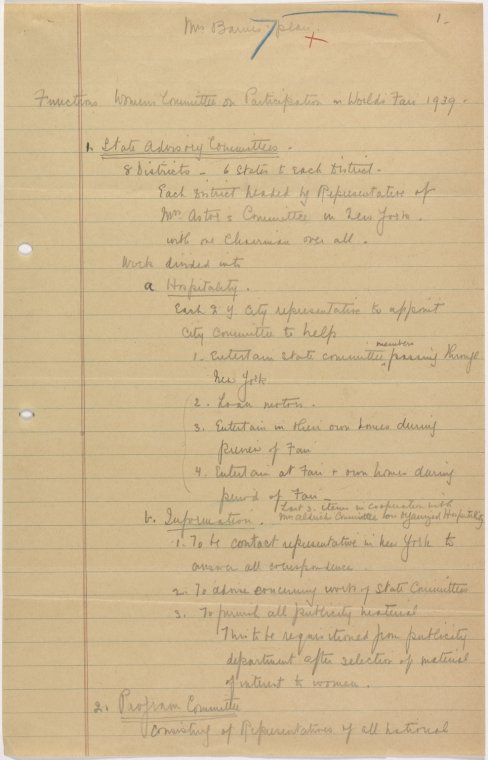 1-
Mrs Barnes' plan.
Functions Womens Committee on Participation in Worlds Fair 1939.
1. State Advisory Committees.
8 Districts - 6 States to each District.
Each District headed by Representative of
Mrs Astor's Committee in New York.
with one Chairman over all.
Work divided into
a Hospitality.
Each N Y City representative to appoint
City Committee to help
1. Entertain State committee members passing through
New York
2. Loan motors.
3. Entertain in their own homes during
preview of Fair
4. Entertain at Fair + own homes during
period of Fair -
Last 3 items in cooperation with
Mrs Aldrich Committee on Organized Hospitality
b. Information.
1. To be contact representative in New York to
answer all correspondence.
2. To advise concerning work of State Committees
3. To furnish all publicity material
This to be requisitioned from publicity
department after selection of material
of interest to women.
2. Program Committee
Consisting of Representatives of all national